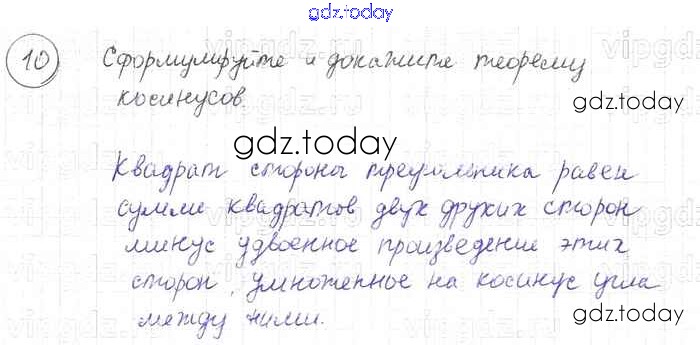 gdz.today
10 Сформулируйте и докажите теорему
косинусов.
gdz.today
gdz.today
Квадрат стороны треугольника равен
сумме квадратов двух других сторон
минус удвоенное произведение этих
сторон, умноженное на косинус угла
между ними.
gdz.today